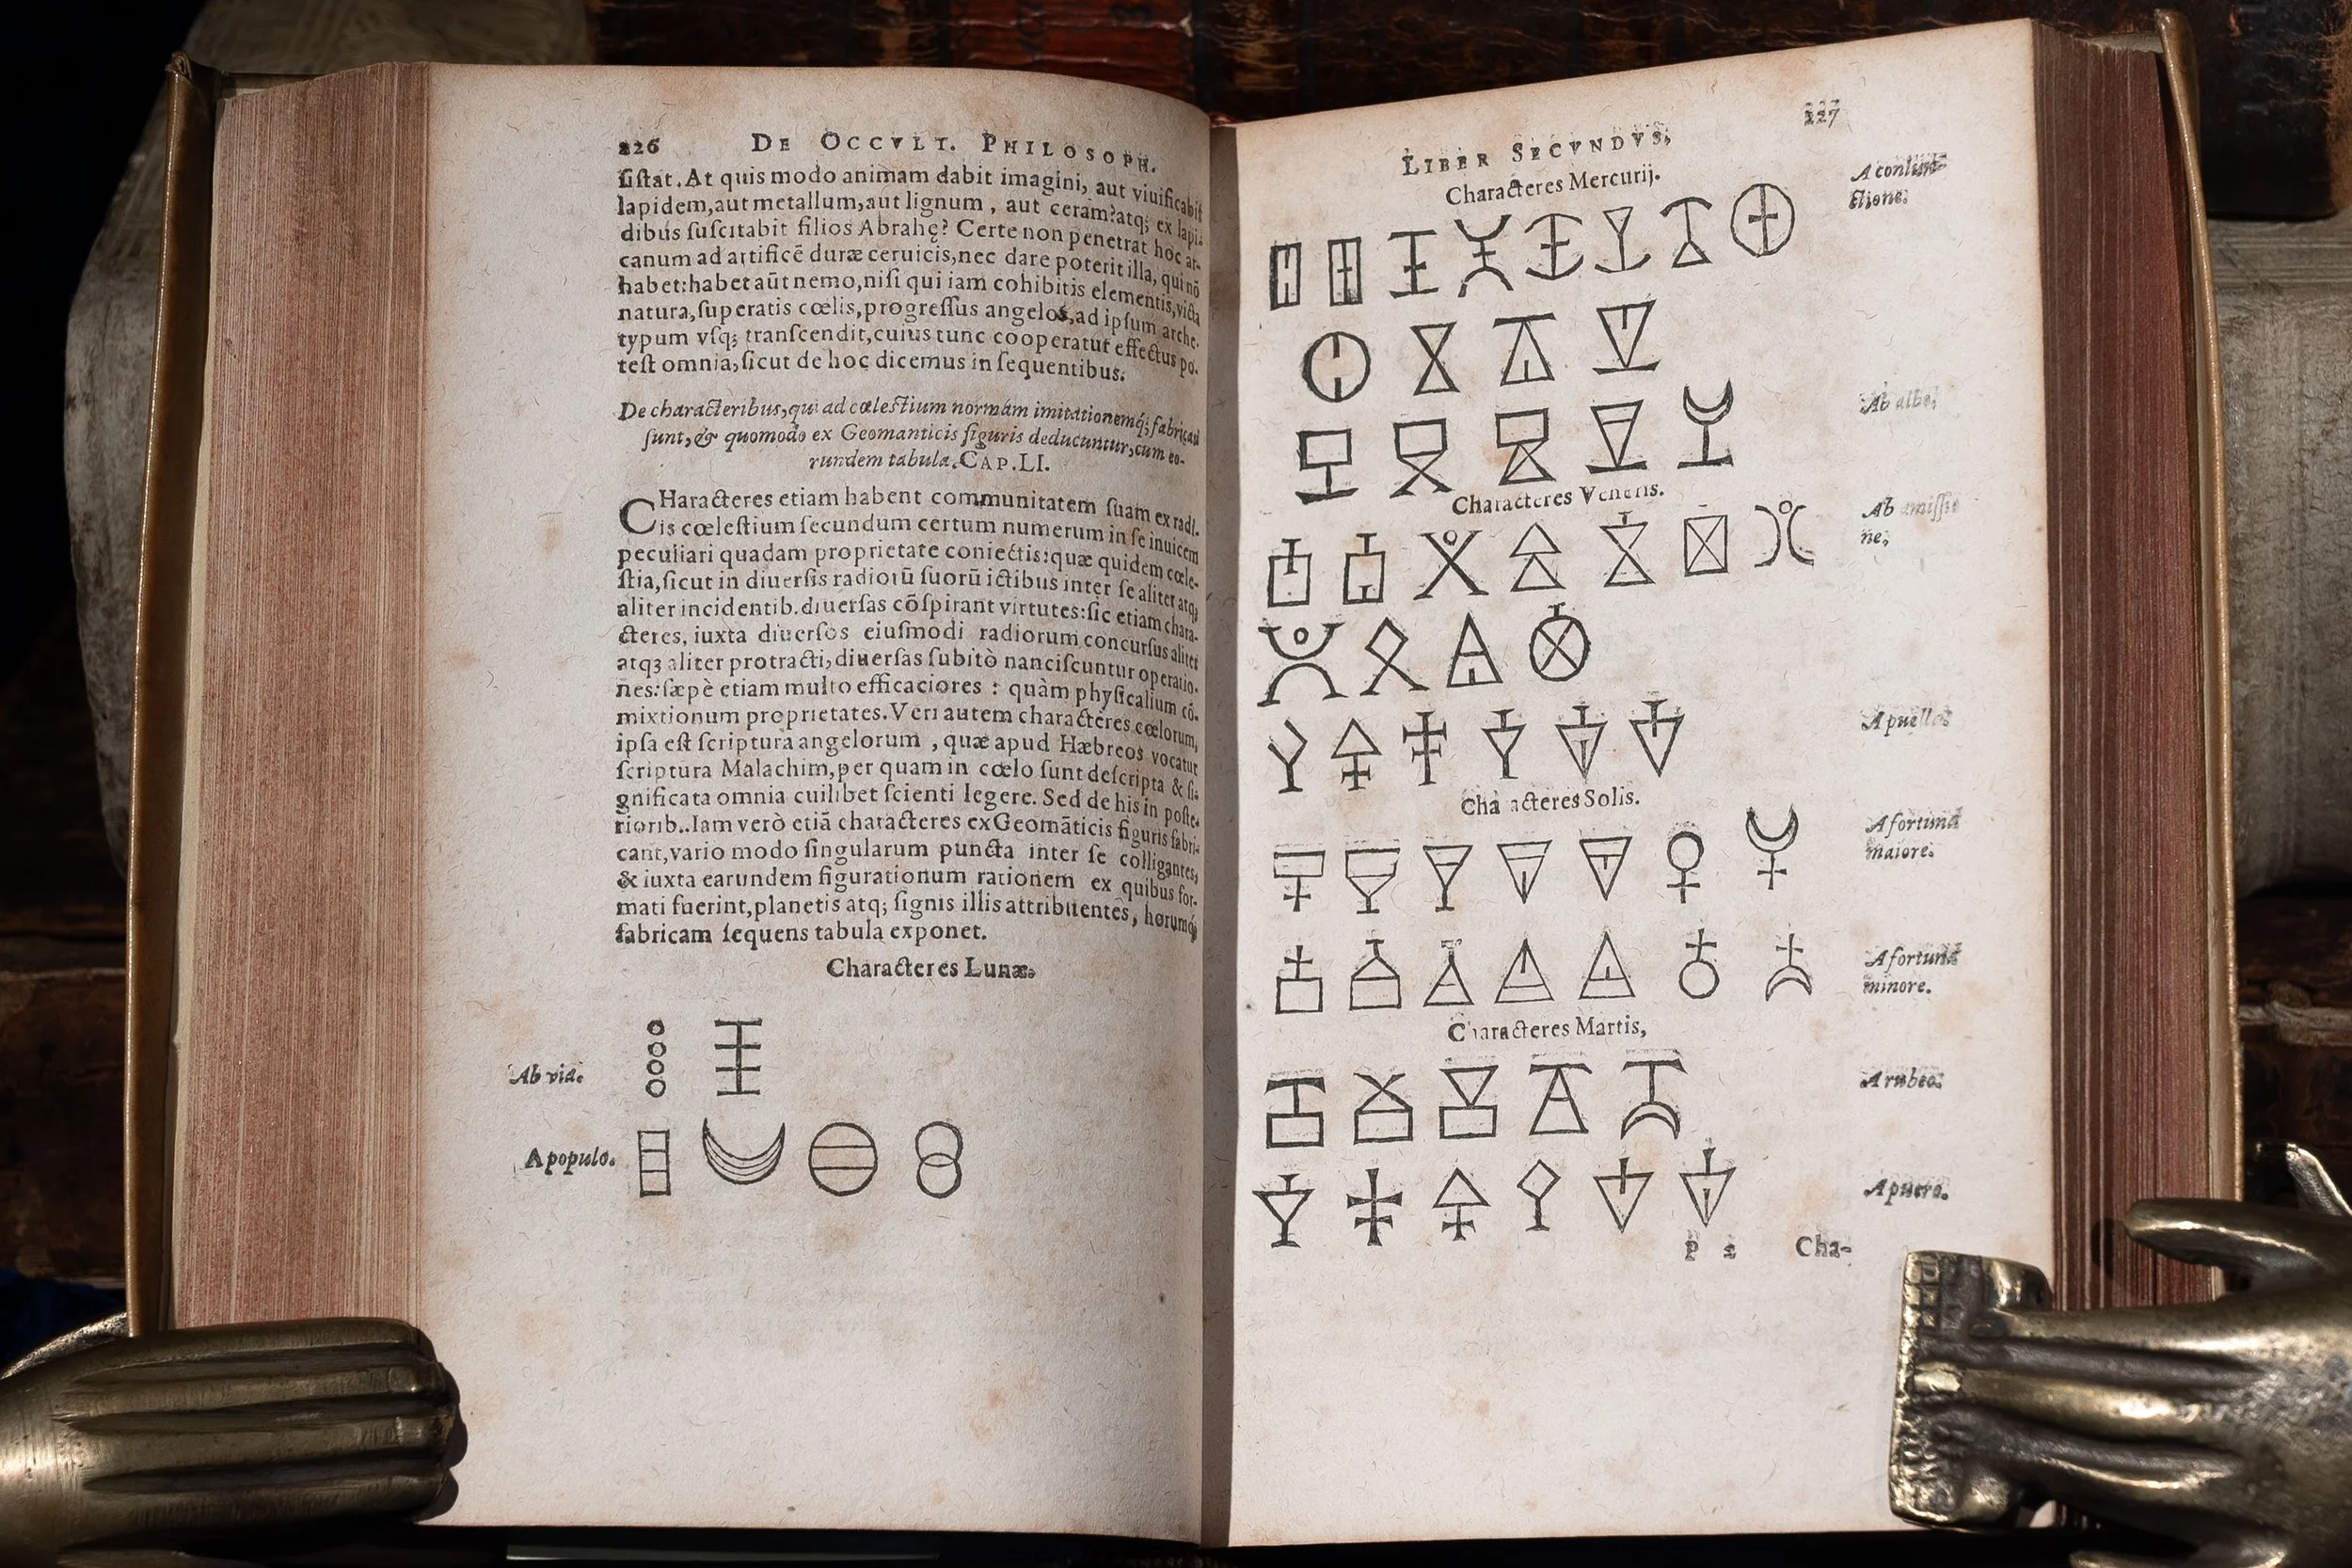 226 DE OCCVLT. PHILOSOPH.
ſiſtat. At quis modo animam dabit imagini, aut viuificabit
lapidem, aut metallum, aut lignum, aut ceram? atq; ex lapi-
dibus ſuſcitabit filios Abrahę? Certe non penetrat hoc ar-
canum ad artificē duræ ceruicis, nec dare poterit illa, qui nō
habet: habet aūt nemo, niſi qui iam cohibitis elementis, victa
natura, ſuperatis cœlis, progreſſus angelos, ad ipſum arche-
typum vſq; tranſcendit, cuius tunc cooperatur effectus po-
teſt omnia, ſicut de hoc dicemus in ſequentibus.
De characteribus, qui ad cœleſtium normam imitationemq́; fabricati
ſunt, & quomodo ex Geomanticis figuris deducuntur, cum eo-
rundem tabula. CAP. LI.
CHaracteres etiam habent communitatem ſuam ex radi-
is cœleſtium ſecundum certum numerum in ſe inuicem
peculiari quadam proprietate coniectis: quæ quidem cœle-
ſtia, ſicut in diuerſis radiorū ſuorū ictibus inter ſe aliter atq;
aliter incidentib. diuerſas cōſpirant virtutes: ſic etiam chara-
cteres, iuxta diuerſos eiuſmodi radiorum concurſus aliter
atqꝫ aliter protracti, diuerſas ſubitò nanciſcuntur operatio-
nes: ſæpè etiam multo efficaciores : quàm phyſicalium cō-
mixtionum proprietates. Veri autem characteres cœlorum,
ipſa eſt ſcriptura angelorum, quæ apud Hæbreos vocatur
ſcriptura Malachim, per quam in cœlo ſunt deſcripta & ſi-
gnificata omnia cuilibet ſcienti legere. Sed de his in poſte-
riorib.. Iam verò etiā characteres ex Geomāticis figuris fabri-
cant, vario modo ſingularum puncta inter ſe colligantes,
& iuxta earundem figurationum rationem ex quibus for-
mati fuerint, planetis atq; ſignis illis attribuentes, horumq́;
fabricam ſequens tabula exponet.
Characteres Lunæ.
Ab via.
A populo.
227
LIBER SECVNDVS.
Characteres Mercurij.
A coniun-
ctione.
Ab albo.
Characteres Veneris.
Ab amiſſio
ne.
A puella.
Cha acteres Solis.
A fortuna
maiore.
A fortuna
minore.
Characteres Martis,
A rubeo.
A puero.
P 2 Cha-